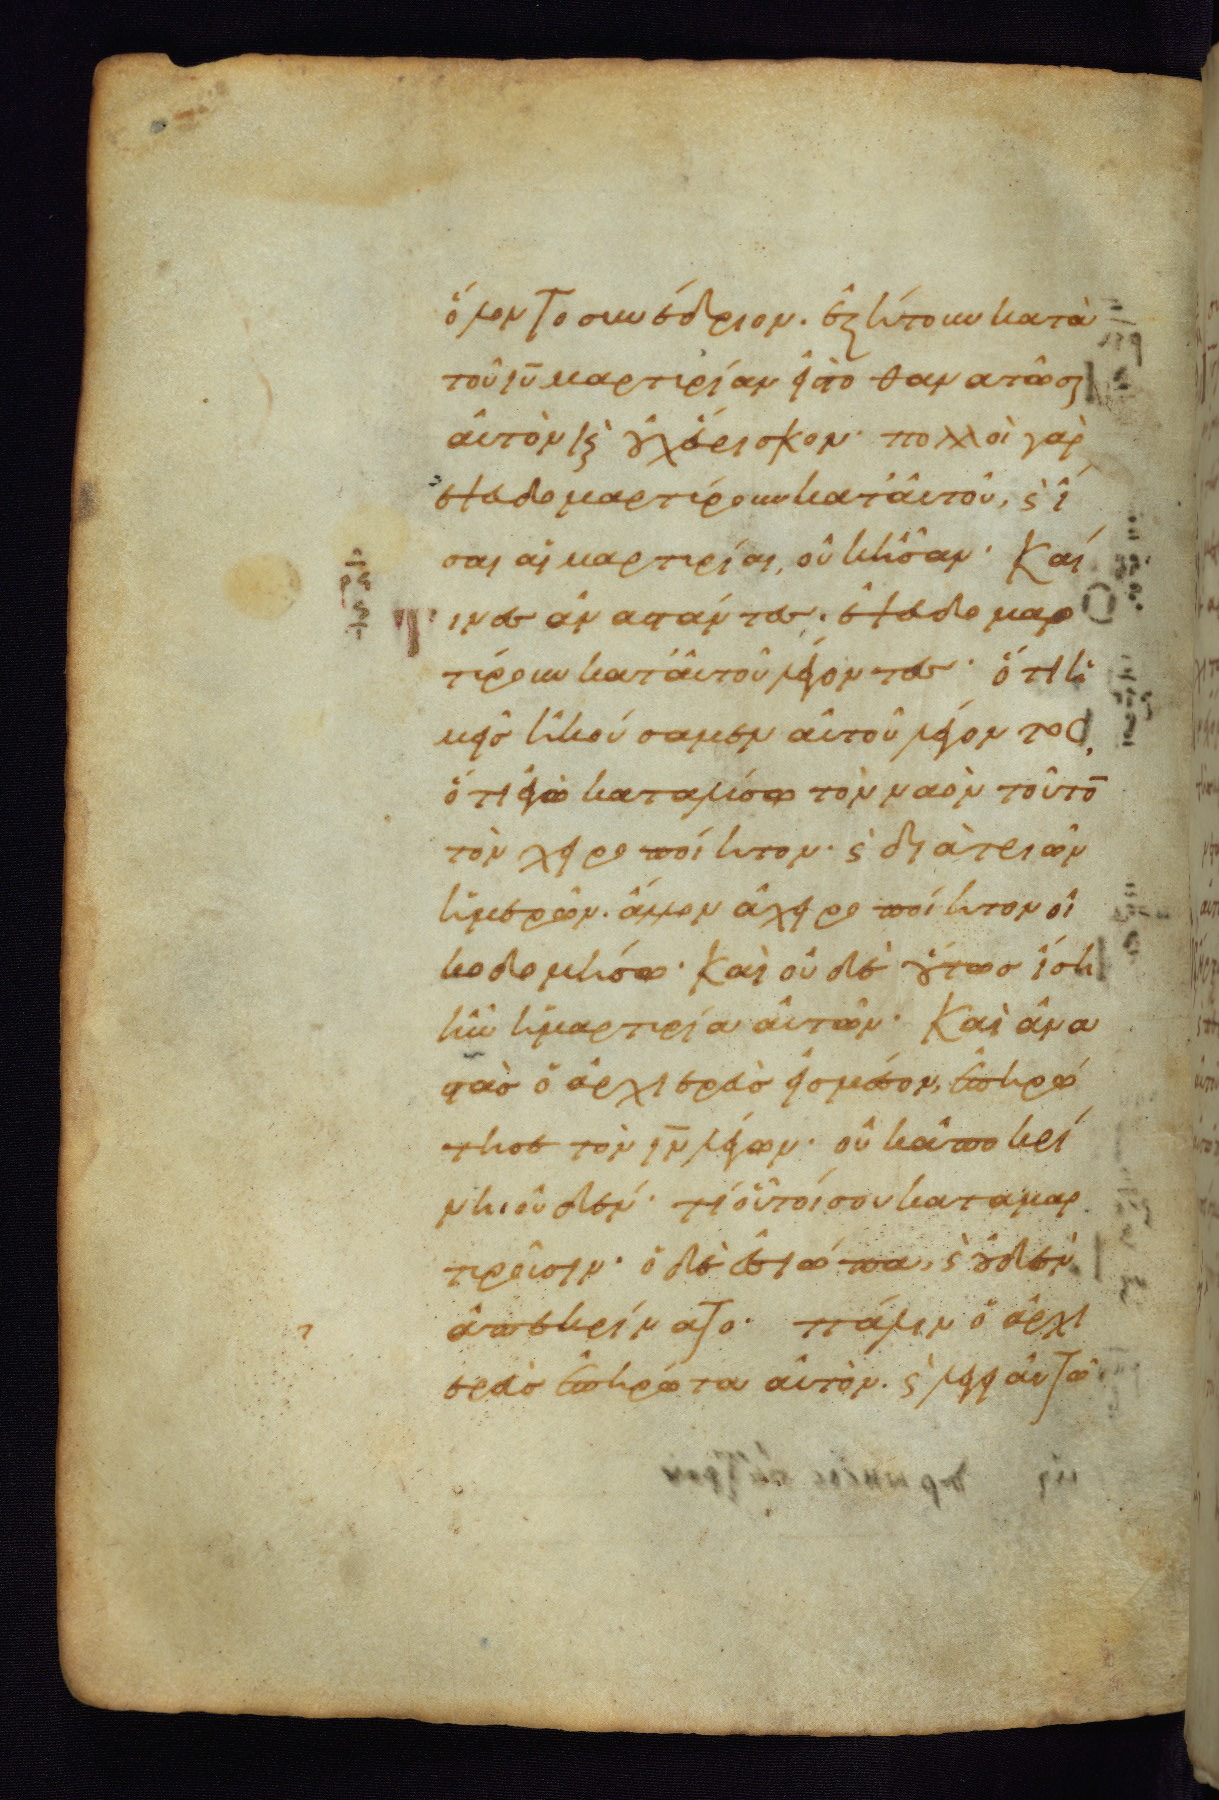 ὅλον το συνέδριον. ἐζήτουν κατὰ
τοῦ ιυ μαρτυρίαν εἰς το θανατῶσαι
αὐτὸν καὶ οὐχ εὕρισκον· πολλοὶ γὰρ
ἐψευδομαρτύρουν κατ αὐτοῦ, καὶ ἴ
σαι αἱ μαρτυρίαι, οὐκ ἦσαν· Καί
τινες ἀναστάντες. ἐψευδομαρ
τύρουν κατ αὐτοῦ λέγοντες· ὅτι ἡ
μεῖς ἠκούσαμεν αὐτοῦ λέγοντος,
ὅτι ἐγὼ καταλύσω τὸν ναὸν τοῦτο
τὸν χειροποίητον· καὶ διὰ τριῶν
ἡμερῶν. ἄλλον ἀχειροποίητον οἰ
κοδομήσω· Καὶ οὐδὲ οὕτως ἴση
ἦν ἡ μαρτυρία αὐτῶν· Καὶ ἀνα
στὰς ὁ ἀρχιερεὺς εἰς μέσον, ἐπηρώ
τησε τὸν ιν λέγων· οὐκ ἀποκρί
νη οὐδέν· τί οὗτοί σου καταμαρ
τυροῦσιν· ὁ δὲ ἐσιώπα, καὶ οὐδὲν
ἀπεκρίνατο· πάλιν ὁ ἀρχι
ερεὺς ἐπηρώτα αὐτὸν. καὶ λέγει αὐτῶ